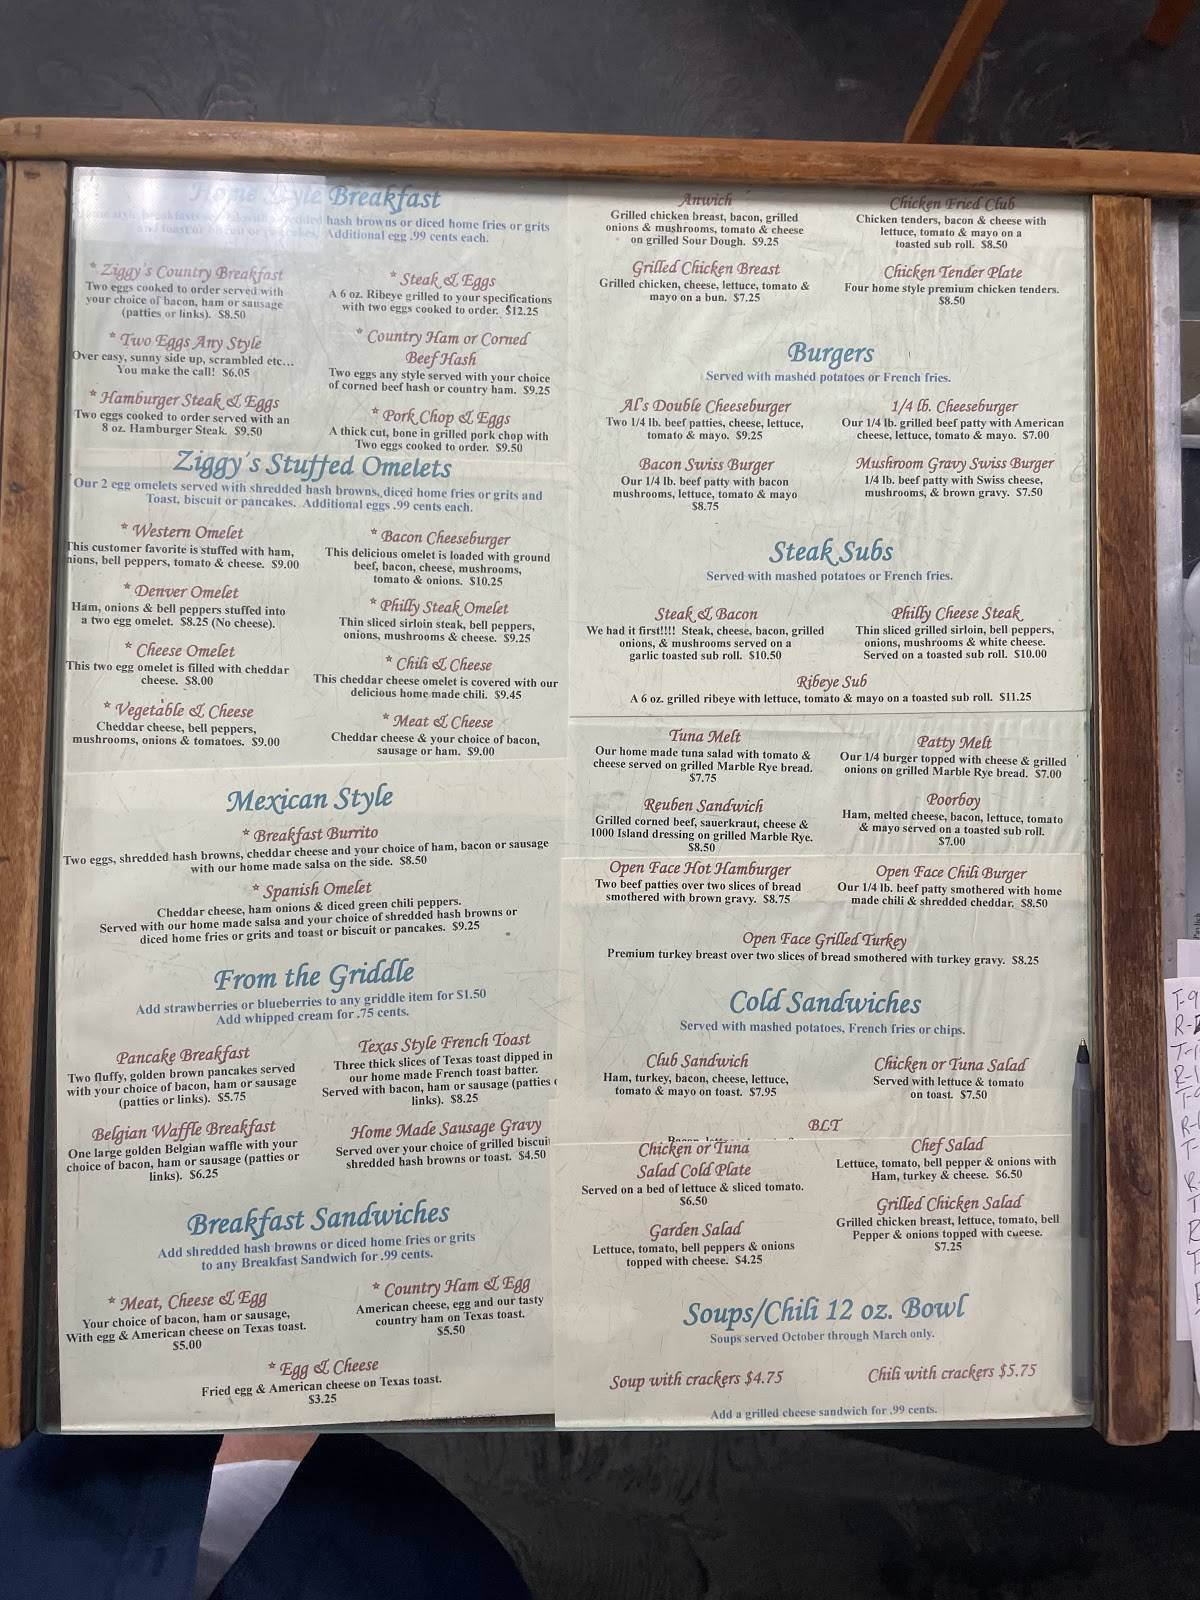 Home Style Breakfast
hash browns or diced home fries or grits
Additional egg .99 cents each.
* Ziggy's Country Breakfast
Two eggs cooked to order served with
your choice of bacon, ham or sausage
(patties or links). $8.50
* Steak & Eggs
A 6 oz. Ribeye grilled to your specifications
with two eggs cooked to order. $12.25
* Two Eggs Any Style
Over easy, sunny side up, scrambled etc...
You make the call! $6.05
* Country Ham or Corned
Beef Hash
Two eggs any style served with your choice
of corned beef hash or country ham. $9.25
* Hamburger Steak & Eggs
Two eggs cooked to order served with an
8 oz. Hamburger Steak. $9.50
* Pork Chop & Eggs
A thick cut, bone in grilled pork chop with
Two eggs cooked to order. $9.50
Ziggy's Stuffed Omelets
Our 2 egg omelets served with shredded hash browns, diced home fries or grits and
Toast, biscuit or pancakes. Additional eggs .99 cents each.
* Western Omelet
This customer favorite is stuffed with ham,
nions, bell peppers, tomato & cheese. $9.00
* Bacon Cheeseburger
This delicious omelet is loaded with ground
beef, bacon, cheese, mushrooms,
tomato & onions. $10.25
* Denver Omelet
Ham, onions & bell peppers stuffed into
a two egg omelet. $8.25 (No cheese).
* Philly Steak Omelet
Thin sliced sirloin steak, bell peppers,
onions, mushrooms & cheese. $9.25
* Cheese Omelet
This two egg omelet is filled with cheddar
cheese. $8.00
* Chili & Cheese
This cheddar cheese omelet is covered with our
delicious home made chili. $9.45
* Vegetable & Cheese
Cheddar cheese, bell peppers,
mushrooms, onions & tomatoes. $9.00
* Meat & Cheese
Cheddar cheese & your choice of bacon,
sausage or ham. $9.00
Mexican Style
* Breakfast Burrito
Two eggs, shredded hash browns, cheddar cheese and your choice of ham, bacon or sausage
with our home made salsa on the side. $8.50
* Spanish Omelet
Cheddar cheese, ham onions & diced green chili peppers.
Served with our home made salsa and your choice of shredded hash browns or
diced home fries or grits and toast or biscuit or pancakes. $9.25
From the Griddle
Add strawberries or blueberries to any griddle item for $1.50
Add whipped cream for .75 cents.
Pancake Breakfast
Two fluffy, golden brown pancakes served
with your choice of bacon, ham or sausage
(patties or links). $5.75
Texas Style French Toast
Three thick slices of Texas toast dipped in
our home made French toast batter.
Served with bacon, ham or sausage (patties
links). $8.25
Belgian Waffle Breakfast
One large golden Belgian waffle with your
choice of bacon, ham or sausage (patties or
links). $6.25
Home Made Sausage Gravy
Served over your choice of grilled biscui
shredded hash browns or toast. $4.50
Breakfast Sandwiches
Add shredded hash browns or diced home fries or grits
to any Breakfast Sandwich for .99 cents.
* Meat, Cheese & Egg
Your choice of bacon, ham or sausage,
With egg & American cheese on Texas toast.
$5.00
* Country Ham & Egg
American cheese, egg and our tasty
country ham on Texas toast.
$5.50
* Egg & Cheese
Fried egg & American cheese on Texas toast.
$3.25
Anwich
Grilled chicken breast, bacon, grilled
onions & mushrooms, tomato & cheese
on grilled Sour Dough. $9.25
Chicken Fried Club
Chicken tenders, bacon & cheese with
lettuce, tomato & mayo on a
toasted sub roll. $8.50
Grilled Chicken Breast
Grilled chicken, cheese, lettuce, tomato &
mayo on a bun. $7.25
Chicken Tender Plate
Four home style premium chicken tenders.
$8.50
Burgers
Served with mashed potatoes or French fries.
Al's Double Cheeseburger
Two 1/4 lb. beef patties, cheese, lettuce,
tomato & mayo. $9.25
1/4 lb. Cheeseburger
Our 1/4 lb. grilled beef patty with American
cheese, lettuce, tomato & mayo. $7.00
Bacon Swiss Burger
Our 1/4 lb. beef patty with bacon
mushrooms, lettuce, tomato & mayo
$8.75
Mushroom Gravy Swiss Burger
1/4 lb. beef patty with Swiss cheese,
mushrooms, & brown gravy. $7.50
Steak Subs
Served with mashed potatoes or French fries.
Steak & Bacon
We had it first!!!! Steak, cheese, bacon, grilled
onions, & mushrooms served on a
garlic toasted sub roll. $10.50
Philly Cheese Steak
Thin sliced grilled sirloin, bell peppers,
onions, mushrooms & white cheese.
Served on a toasted sub roll. $10.00
Ribeye Sub
A 6 oz. grilled ribeye with lettuce, tomato & mayo on a toasted sub roll. $11.25
Tuna Melt
Our home made tuna salad with tomato &
cheese served on grilled Marble Rye bread.
$7.75
Patty Melt
Our 1/4 burger topped with cheese & grilled
onions on grilled Marble Rye bread. $7.00
Reuben Sandwich
Grilled corned beef, sauerkraut, cheese &
1000 Island dressing on grilled Marble Rye.
$8.50
Poorboy
Ham, melted cheese, bacon, lettuce, tomato
& mayo served on a toasted sub roll.
$7.00
Open Face Hot Hamburger
Two beef patties over two slices of bread
smothered with brown gravy. $8.75
Open Face Chili Burger
Our 1/4 lb. beef patty smothered with home
made chili & shredded cheddar. $8.50
Open Face Grilled Turkey
Premium turkey breast over two slices of bread smothered with turkey gravy. $8.25
Cold Sandwiches
Served with mashed potatoes, French fries or chips.
Club Sandwich
Ham, turkey, bacon, cheese, lettuce,
tomato & mayo on toast. $7.95
Chicken or Tuna Salad
Served with lettuce & tomato
on toast. $7.50
BLT
Chicken or Tuna
Salad Cold Plate
Served on a bed of lettuce & sliced tomato.
$6.50
Chef Salad
Lettuce, tomato, bell pepper & onions with
Ham, turkey & cheese. $6.50
Garden Salad
Lettuce, tomato, bell peppers & onions
topped with cheese. $4.25
Grilled Chicken Salad
Grilled chicken breast, lettuce, tomato, bell
Pepper & onions topped with cheese.
$7.25
Soups/Chili 12 oz. Bowl
Soups served October through March only.
Soup with crackers $4.75
Chili with crackers $5.75
Add a grilled cheese sandwich for .99 cents.